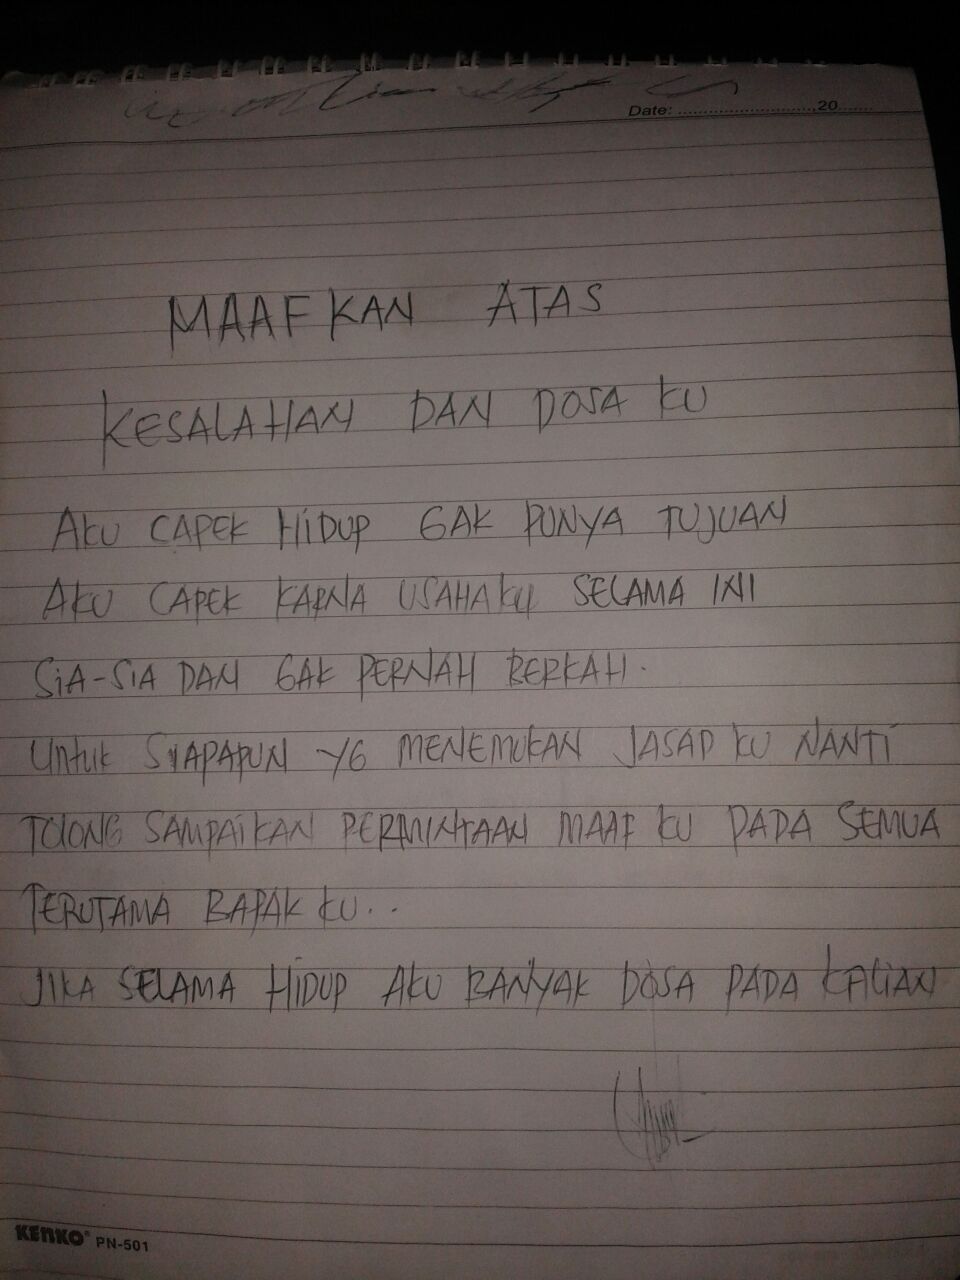 Date: ......................... 20.......
MAAFKAN ATAS
KESALAHAN DAN DOSA KU
AKU CAPEK HIDUP GAK PUNYA TUJUAN
AKU CAPEK KARNA USAHAKU SELAMA INI
SIA-SIA DAN GAK PERNAH BERKAH.
UNTUK SIAPAPUN YG MENEMUKAN JASAD KU NANTI
TOLONG SAMPAIKAN PERMINTAAN MAAF KU PADA SEMUA
TERUTAMA BAPAK KU..
JIKA SELAMA HIDUP AKU BANYAK DOSA PADA KALIAN
KENKO® PN-501